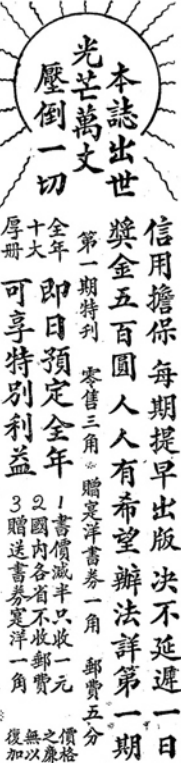 本誌出世
光芒萬丈
壓倒一切
信用擔保 每期提早出版 決不延遲一日
獎金五百圓 人人有希望 辦法詳第一期
第一期特刊 零售三角 贈寔洋書券一角 郵費五分
全年十大厚册
即日預定全年
可享特別利益
1書價減半只收一元
2國內各省不收郵費
3贈送書券寔洋一角
價格之廉無以復加